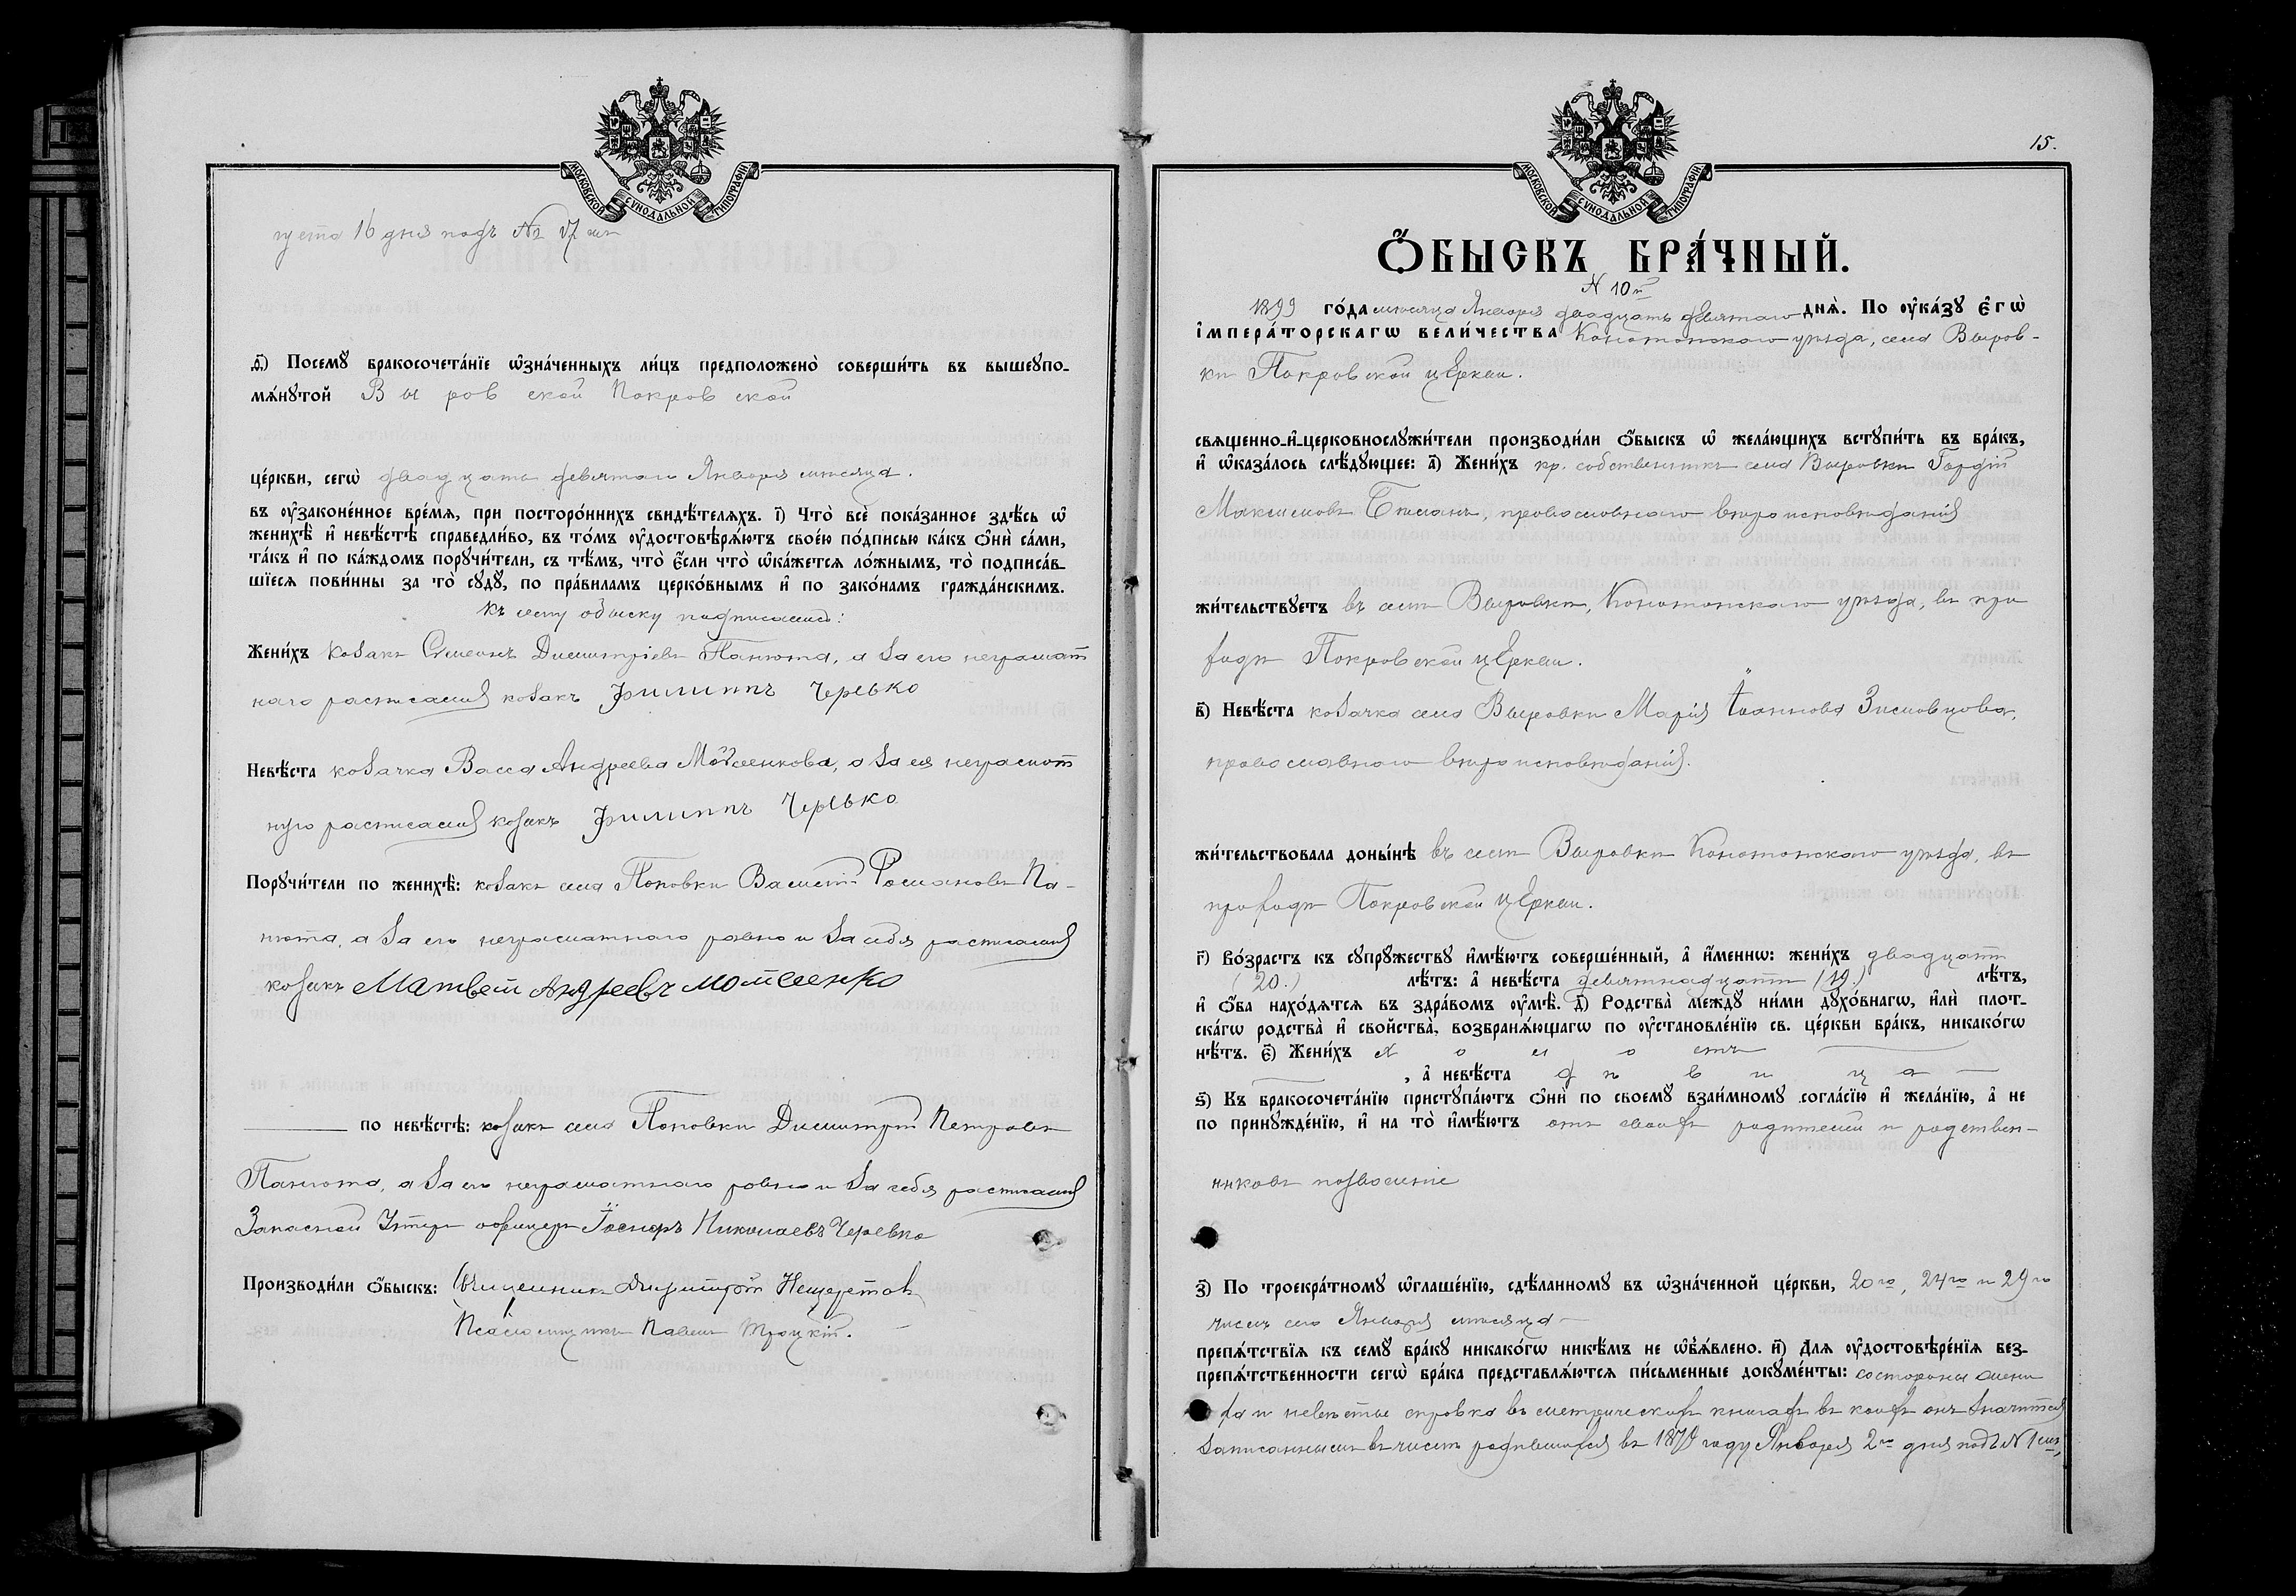 МОСКОВСКОЙ СУНОДАЛЬНОЙ ТИПОГРАФІИ
густа 16 дня подъ № 17 мъ
д҃) Посемꙋ бракосочета́нїе ѡ҆зна́ченныхъ ли́цъ предположено̀ соверши́ть въ вышеꙋпо-
мѧ́нꙋтой Выровской Покровской
це́ркви, сегѡ̀ двадцать девятаго Января мѣсяца.
въ ᲂу҆законе́нное вре́мѧ, при посторо́ннихъ свидѣ́телѧхъ. і҃) Что̀ всѐ пока́занное здѣ́сь ѡ҆
женихѣ̀ и҆ невѣ́стѣ справедли́во, въ то́мъ ᲂу҆достовѣрѧ́ютъ свое́ю по́дписью ка́къ ѻ҆нѝ са́ми,
та́къ и҆ по ка́ждомъ порꙋчи́тели, съ тѣ́мъ, что̀ є҆́сли что̀ ѡ҆ка́жетсѧ ло́жнымъ, то̀ подписа́в-
шїесѧ пови́нны за то̀ сꙋдꙋ̀, по пра́виламъ церко́внымъ и҆ по зако́намъ гражда́нскимъ.
Къ сему обыску подписались:
Жени́хъ козакъ Симеонъ Димитріевъ Панюта, а за его неграмот
наго росписался козакъ Филиппъ Черевко
Невѣ́ста козачка Васса Андреева Мойсеенкова, а за ея неграмот
ную росписался козакъ Филиппъ Черевко
Порꙋчи́тели по женихѣ̀: козакъ села Поповки Василій Романовъ Па-
нюта, а за его неграмотнаго равно и за себя росписался
козакъ Матвей Андреевъ Мойсеенко
по невѣ́стѣ: козакъ села Поповки Димитрій Петровъ
Панюта, а за его неграмотнаго равно и за себя росписался
Запасной Унтеръ офицеръ Іосифъ Николаевъ Черевко
Производи́ли ѻ҆́быскъ: Священникъ Димитрій Нещеретовъ
Псаломщикъ Павелъ Троцкій.
МОСКОВСКОЙ СУНОДАЛЬНОЙ ТИПОГРАФІИ
15.
Ѻ҆́БЫСКЪ БРА́ЧНЫЙ.
N 10й
1899 го́да мѣсяца Января двадцать девятаго днѧ̀. По ᲂу҆ка́зꙋ є҆гѡ̀
і҆мпера́торскагѡ вели́чества Конотопскаго уѣзда, села Выров-
ки Покровской церкви.
свѧщенно-и҆-церковнослꙋжи́тели производи́ли ѻ҆́быскъ ѡ҆ жела́ющихъ встꙋпи́ть въ бра́къ,
и҆ ѡ҆каза́лось слѣ́дꙋющее: а҃) Жени́хъ кр. собственникъ села Выровки Гордій
Максимовъ Бѣланъ, православнаго вѣроисповѣданія
жи́тельствꙋетъ въ селѣ Выровки, Конотопскаго уѣзда, въ при
ходѣ Покровской церкви.
в҃) Невѣ́ста козачка села Выровки Марія Іоаннова Зимовцова,
православнаго вѣроисповѣданія.
жи́тельствовала доны́нѣ въ селѣ Выровки Конотопскаго уѣзда, въ
приходѣ Покровской церкви.
г҃) Во́зрастъ къ сꙋпрꙋ́жествꙋ и҆мѣ́ютъ соверше́нный, а҆ и҆́менно: жени́хъ двадцати
(20.) лѣ́тъ: а҆ невѣ́ста девятнадцати (19.) лѣ́тъ,
и҆ ѻ҆́ба нахо́дѧтсѧ въ здра́вомъ ᲂу҆мѣ̀. д҃) Родства̀ междꙋ̀ ни́ми дꙋхо́внагѡ, и҆лѝ плот-
ска́гѡ родства̀ и҆ свойства̀, возбранѧ́ющагѡ по ᲂу҆становле́нїю св. це́ркви бра́къ, никако́гѡ
нѣ́тъ. є҃) Жени́хъ холостъ
, а҆ невѣ́ста дѣвица
ѕ҃) Къ бракосочета́нїю пристꙋпа́ютъ ѻ҆нѝ по своемꙋ̀ взаи́мномꙋ согла́сїю и҆ жела́нїю, а҆ не
по принꙋжде́нїю, и҆ на то̀ и҆мѣ́ютъ отъ своихъ родителей и родствен-
никовъ позволеніе
з҃) По троекра́тномꙋ ѡ҆глаше́нїю, сдѣ́ланномꙋ въ ѡ҆зна́ченной це́ркви, 20го, 24го и 29го
чиселъ сего Января мѣсяца
препѧ́тствїѧ къ семꙋ̀ бра́кꙋ никако́гѡ никѣ́мъ не ѡ҆б̾ѧ́влено. и҃) Длѧ ᲂу҆достовѣре́нїѧ без-
препѧ́тственности сегѡ̀ бра́ка представлѧ́ютсѧ пи́сьменные докꙋме́нты: со стороны жени
ха и невѣсты справка въ метрическихъ книгахъ въ коихъ онъ значится
записаннымъ въ числѣ родившихся въ году Января 2го дня подъ N 1мъ,